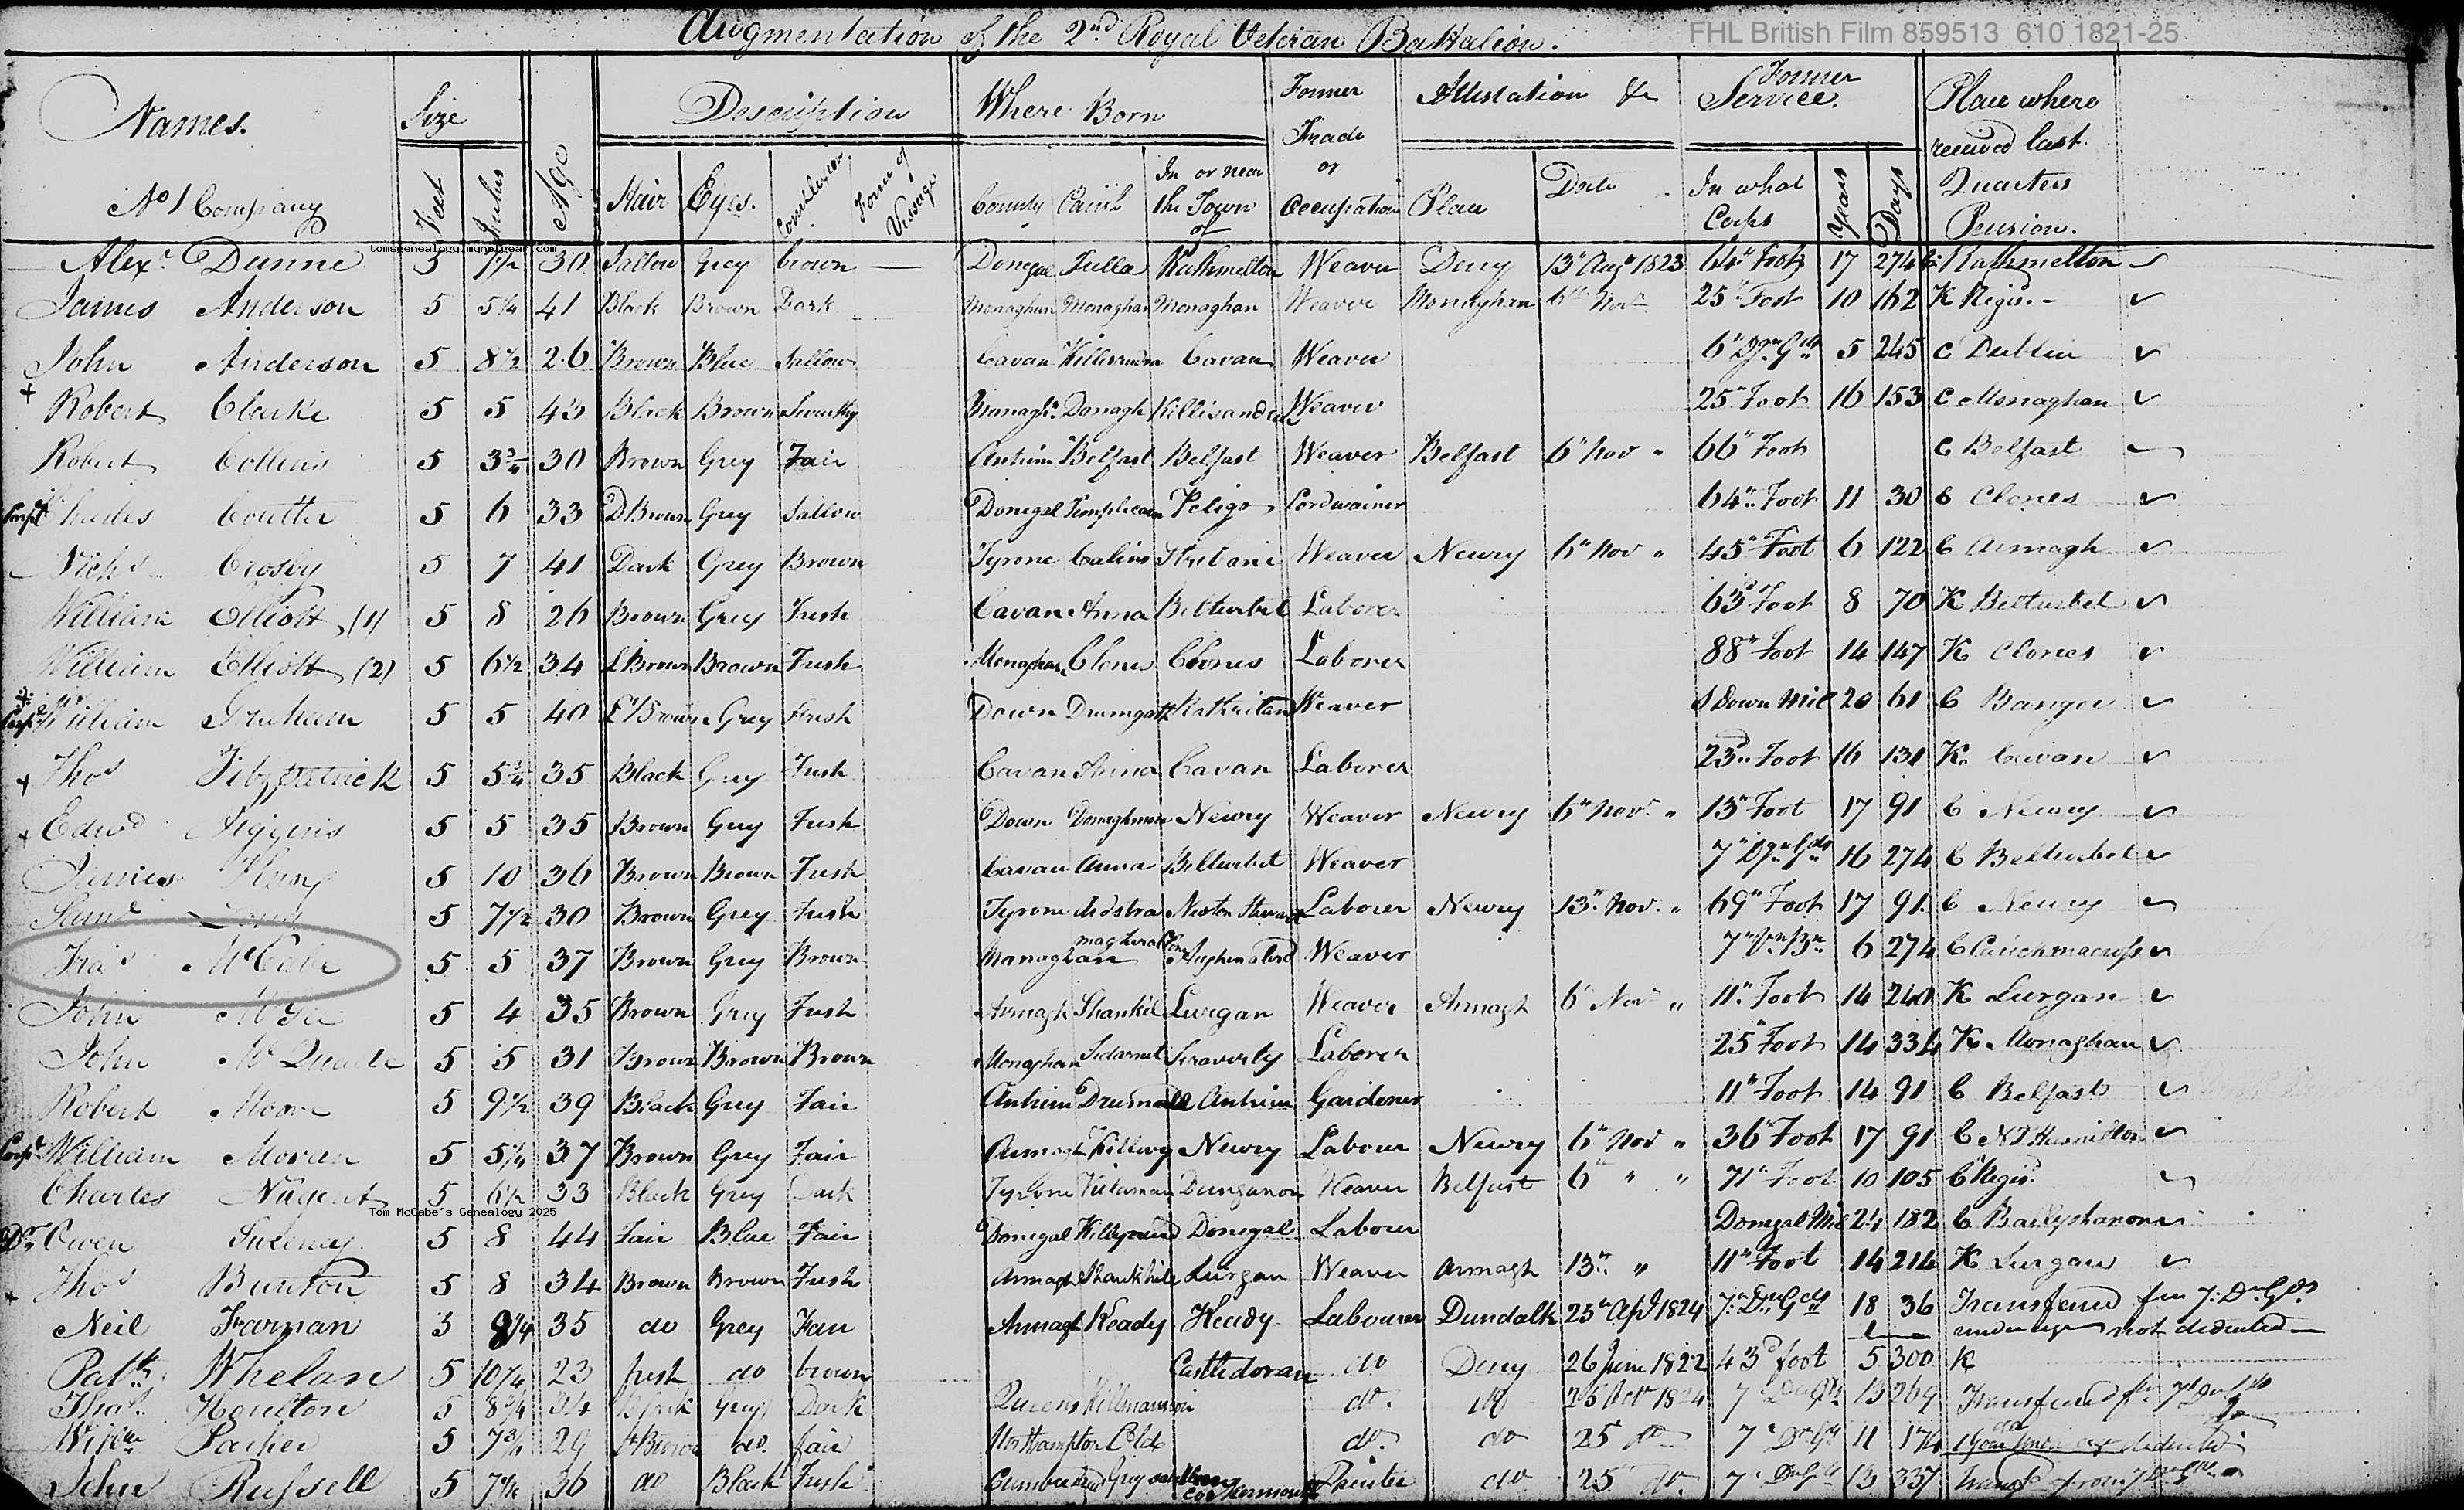 Augmentation of the 2nd Royal Veteran Battalion.
FHL British Film 859513 610 1821-25
Names. Size Age Description Where Born Former Trade or Occupation Attestation &c Former Service. Place where received last Quarters Pension.
No 1 Company Feet Inches Hair Eyes. Complexion Form of Visage County Parish In or near the Town of Place Date In what Corps Years Days
tomsgenealogy.mynetgear.com
Alexr. Dunne 5 30 Sallow Grey brown — Donegal Tulla Rathmelton Weaver Derry 13 Augt 1823 64th Foot 17 274 Rathmelton
James Anderson 5 5¼ 41 Black Brown Dark Monaghan Monaghan Monaghan Weaver Monaghan 6th Novr 25th Foot 10 162 K Regd. -
John Anderson 5 8½ 26 Brown Blue Sallow Cavan Cavan Weaver 6th Dn Gds 5 245 C Dublin
+ Robert Clarke 5 5 43 Black Brown Swarthy Monaghn. Donagh Weaver 25th Foot 16 153 C Monaghan
Robert Collins 5 3¾ 30 Brown Grey Fair Antrim Belfast Belfast Weaver Belfast 6th Nov " 66th Foot C Belfast
Corpl Charles Coulter 5 6 33 D Brown Grey Sallow Donegal Templecarn Petigo Cordwainer 64th Foot 11 30 C Clones
Nichs Crosby 5 7 41 Dark Grey Brown Tyrone Strabane Weaver Newry 6th Nov " 45th Foot 6 122 C Armagh
William Elliott (1) 5 8 26 Brown Grey Fresh Cavan Anna Belturbet Laborer 63d Foot 8 70 K Belturbet
William Elliott (2) 5 6½ 34 L Brown Brown Fresh Monaghan Clones Clones Laborer 88th Foot 14 147 K Clones
+ Corpl William Graham 5 5 40 L Brown Grey Fresh Down Drumgath Weaver S Down Mil 20 61 C Bangor
+ Thos Fitzpatrick 5 5¾ 35 Black Grey Fresh Cavan Anna Cavan Laborer 23rd Foot 16 131 K Cavan
+ Edwd Higgins 5 5 35 Brown Grey Fresh Down Donaghmore Newry Weaver Newry 6th Novr. " 13th Foot 17 91 C Newry
James 5 10 36 Brown Brown Fresh Cavan Anna Belturbet Weaver 7th Dn Gds 16 274 C Belturbet
Saml 5 7½ 30 Brown Grey Fresh Tyrone Ardstraw Newton Stewart Laborer Newry 13th Nov. " 69th Foot 17 91 C Newry
Fras McCabe 5 5 37 Brown Grey Brown Monaghan Weaver 7th Vn Bn 6 274 C Carrickmacross
John McGee 5 4 35 Brown Grey Fresh Armagh Shankil Lurgan Weaver Armagh 6 Nov " 11th Foot 14 240 K Lurgan
John McQuade 5 5 31 Brown Brown Brown Monaghan Laborer 25th Foot 14 334 K Monaghan
Robert Moore 5 9½ 39 Black Grey Fair Antrim Antrim Gardener 11th Foot 14 91 C Belfast
Corpl William Moran 5 5¼ 37 Brown Grey Fair Armagh Killevy Newry Labourer Newry 6th Nov " 36th Foot 17 91 C N T Hamilton
Charles Nugent 5 6½ 33 Black Grey Dark Tyrone Dunganon Weaver Belfast 6th " " 71st Foot 10 105 C Regd.
Tom McCabe's Genealogy 2025
Dr Owen Sweeney 5 8 44 Fair Blue Fair Donegal Donegal Labourer Donegal Mil 24 182 C Ballyshanon
+ Thos Bunton 5 8 34 Brown Brown Fresh Armagh Shankhill Lurgan Weaver Armagh 13th " 11th Foot 14 214 K Lurgan
Neil Farman 5 35 do Grey Fair Armagh Keady Keady Labourer Dundalk 25th Apl 1824 7th Dn Gds 18 36 Transferred fm 7th Dn Gds
under age not deducted
Patk Whelan 5 10¼ 23 fresh do brown Castledoran do Derry 26 June 1822 43d foot 5 300 K
Thos. Houlton 5 8¼ 34 Black Grey Dark Queens do. do 25 Octr 1824 7th Dn Gds 13 269 Transferred fm 7th Dn Gds
Willm Parker 5 7¾ 29 do. fair Northampton do. do 25 do 7th Dn Gds 11
John Russell 5 36 do Black Fresh Cumberland Cockermouth do 25th do. 7th Dn Gds 13 337